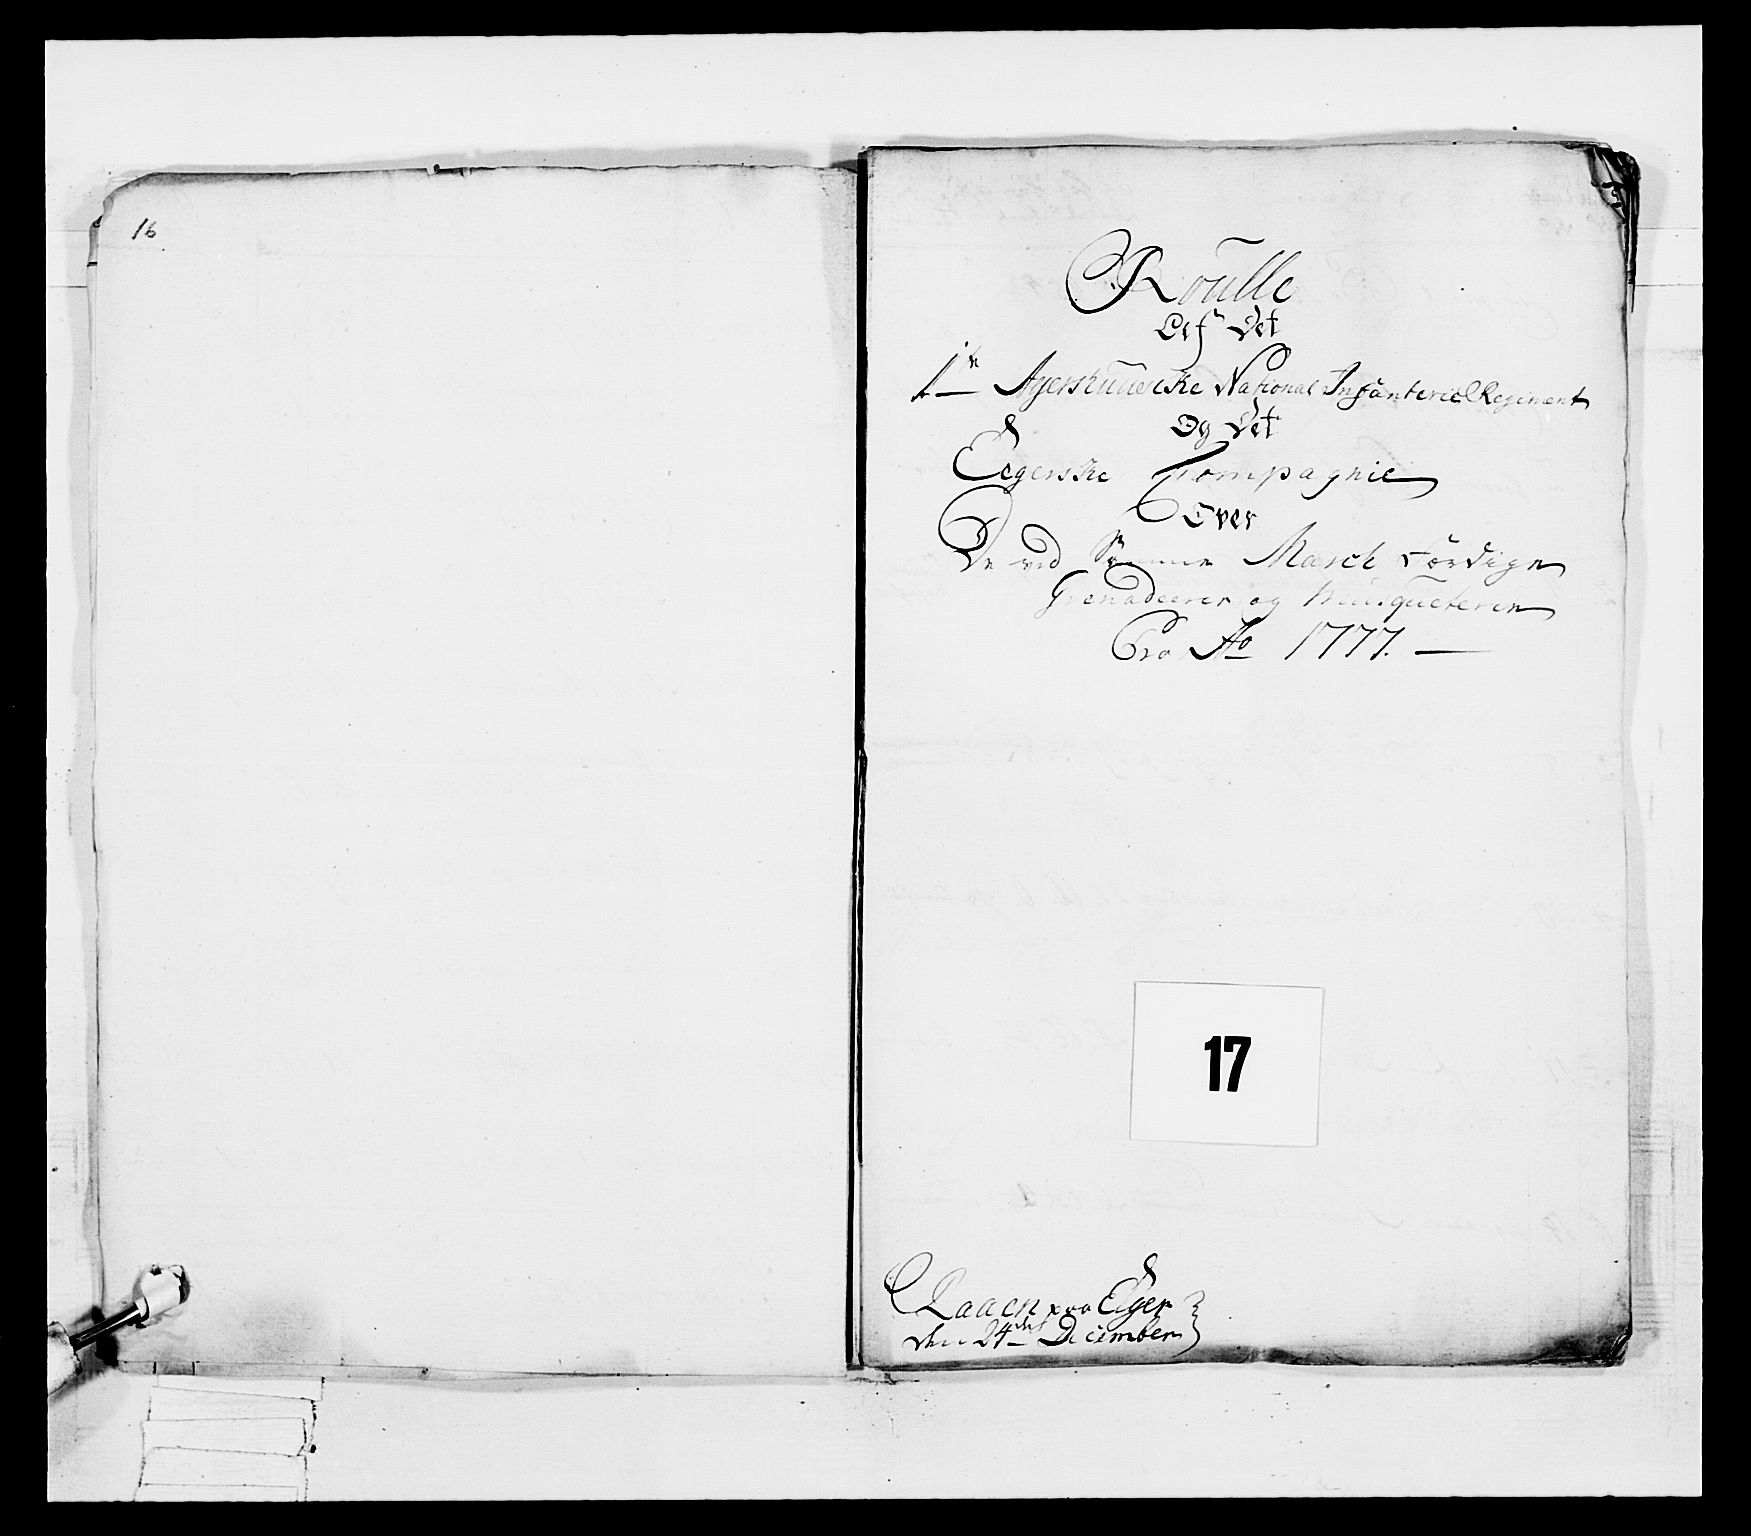 16
Roulle
Af Det
1te Agershuusiske National Infanterie Regiment
Og Det
Eegerske Compagnie
Over
De ved Samme March Færdige
Grenadeerer og Musqueterer
Pro Ao 1777.
17
Raaen paa Eger
den 24de December